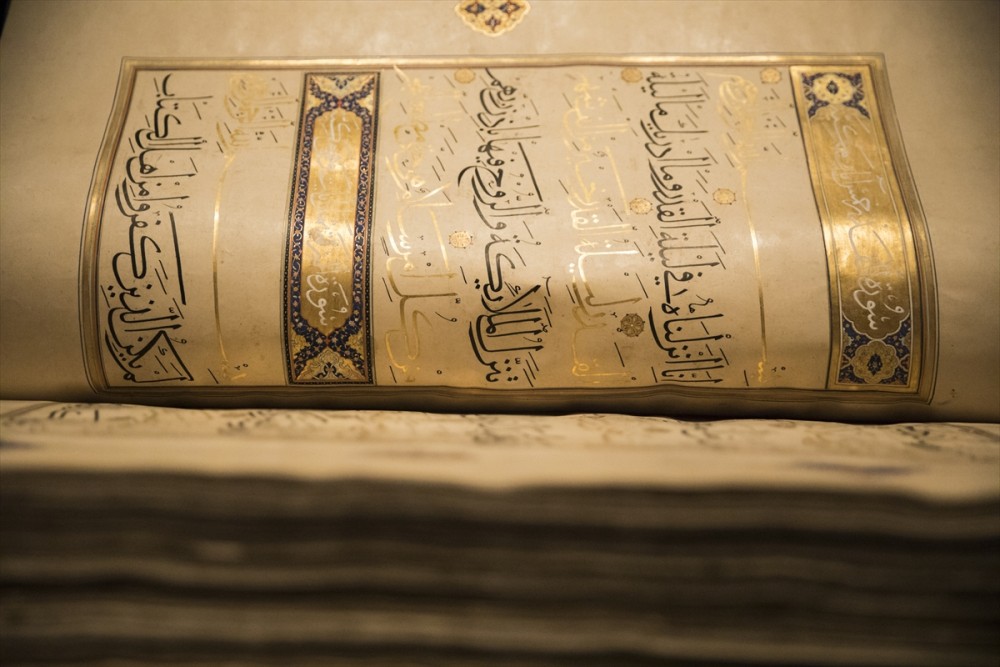 سورة
بسم الله الرحمن الرحيم
انا انزلناه في ليلة القدر وما ادراك ما ليلة
القدر ليلة القدر خير من الف شهر
تنزل الملائكة والروح فيها باذن ربهم
من كل امر سلام هي حتى مطلع الفجر
سورة
بسم الله الرحمن الرحيم
لم يكن الذين كفروا من اهل الكتاب